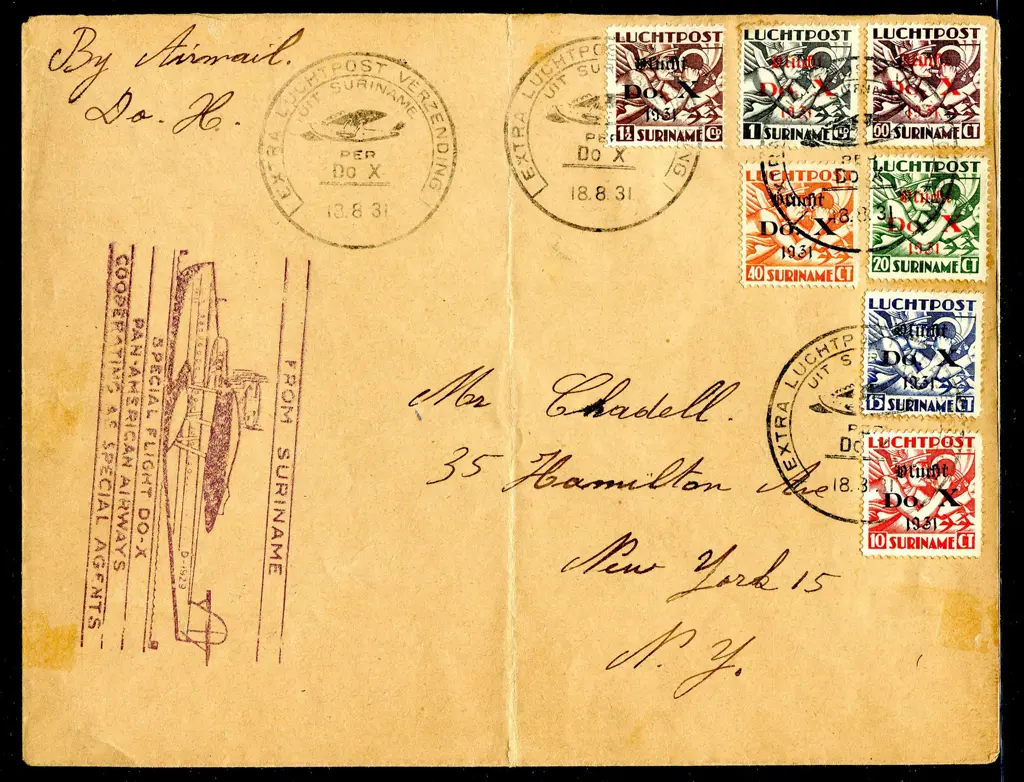 By Airmail.
Do. H.
EXTRA LUCHTPOST VERZENDING
UIT SURINAME
PER
Do X
18.8.31
EXTRA LUCHTPO
UIT SUR
PER
Do X
18.8.31
NG
LUCHTPOST
Vlucht
Do. X
1931
1½ SURINAME GD
LUCHTPOST
Vlucht
Do. X
1931
1 SURINAME GD
LUCHTPOST
Vlucht
Do. X
1931
60 SURINAME CT
LUCHTPOST
Vlucht
Do. X
1931
40 SURINAME CT
PER
Do X
18.8.31
LUCHTPOST
Vlucht
Do. X
1931
20 SURINAME CT
LUCHTPOST
Vlucht
Do. X
1931
15 SURINAME CT
EXTRA LUCHTP
UIT S
PER
Do
18.8.31
LUCHTPOST
Vlucht
Do. X
1931
10 SURINAME CT
FROM SURINAME
D-1929
SPECIAL FLIGHT DO-X
PAN-AMERICAN AIRWAYS
COOPERATING AS SPECIAL AGENTS
Mr Chadell.
35 Hamilton Ave
New York 15
N. Y.